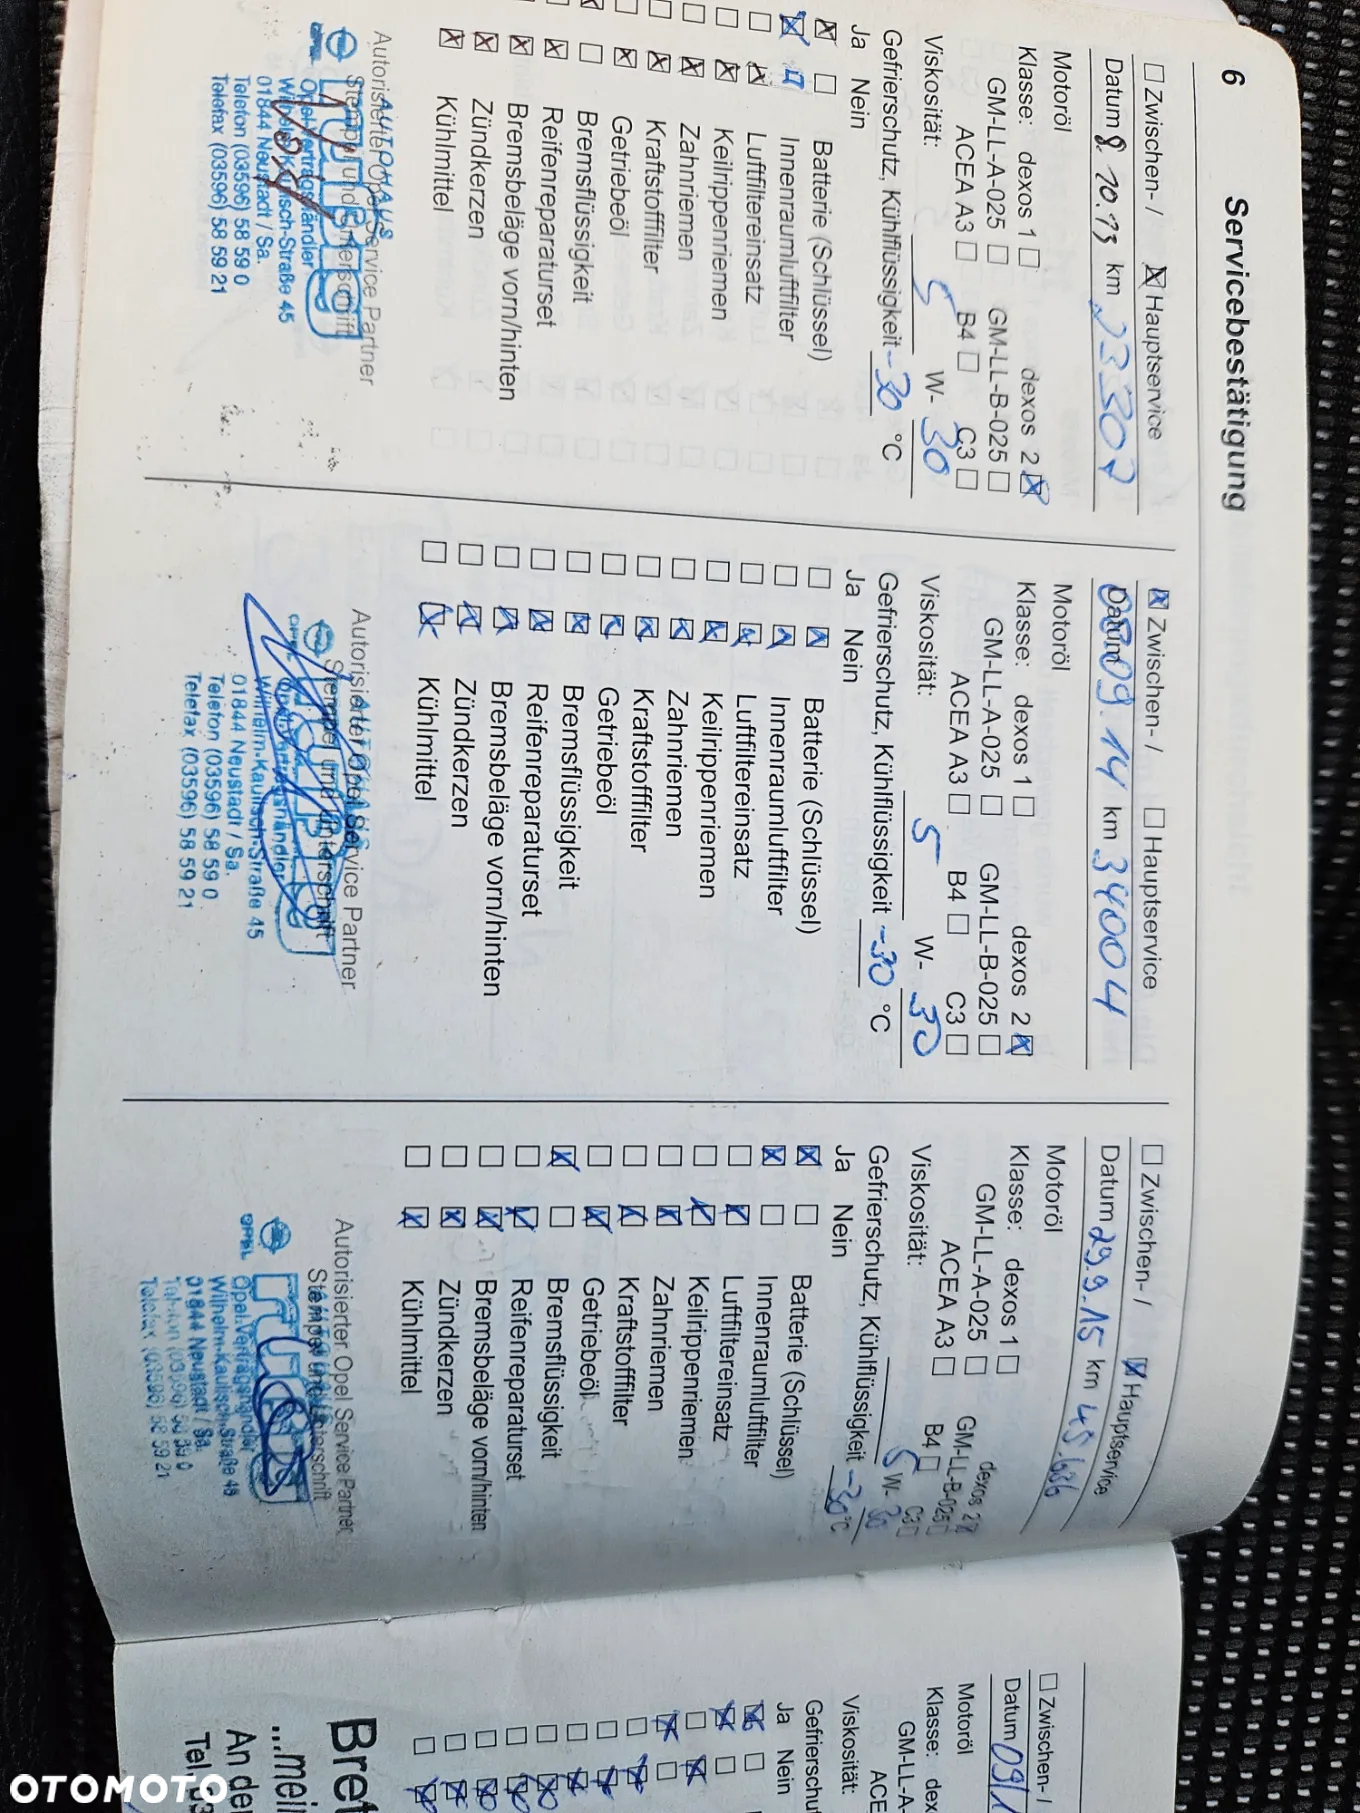 6 Servicebestätigung
☐ Zwischen- / ☒ Hauptservice
Datum 8.10.13 km 23307
Motoröl
Klasse: dexos 1 ☐ dexos 2 ☒
GM-LL-A-025 ☐ GM-LL-B-025 ☐
ACEA A3 ☐ B4 ☐ C3 ☐
Viskosität: 5 W- 30
Gefrierschutz, Kühlflüssigkeit -30 °C
Ja Nein
☒ ☐ Batterie (Schlüssel)
☒ ☐ Innenraumluftfilter
☐ ☒ Luftfiltereinsatz
☐ ☒ Keilrippenriemen
☐ ☒ Zahnriemen
☐ ☒ Kraftstofffilter
☐ ☒ Getriebeöl
☒ ☐ Bremsflüssigkeit
☐ ☒ Reifenreparaturset
☒ Bremsbeläge vorn/hinten
☒ Zündkerzen
☒ Kühlmittel
Autorisierter Opel Service Partner
Stempel und Unterschrift
OPEL
Opel-Vertragshändler
Wilhelm-Kaulisch-Straße 45
01844 Neustadt / Sa.
Telefon (03596) 58 59 0
Telefax (03596) 58 59 21
☒ Zwischen- / ☐ Hauptservice
Datum 08.09.14 km 34004
Motoröl
Klasse: dexos 1 ☐ dexos 2 ☒
GM-LL-A-025 ☐ GM-LL-B-025 ☐
ACEA A3 ☐ B4 ☐ C3 ☐
Viskosität: 5 W- 30
Gefrierschutz, Kühlflüssigkeit -30 °C
Ja Nein
☐ ☒ Batterie (Schlüssel)
☐ ☒ Innenraumluftfilter
☐ ☒ Luftfiltereinsatz
☐ ☒ Keilrippenriemen
☐ ☒ Zahnriemen
☐ ☒ Kraftstofffilter
☐ ☒ Getriebeöl
☐ ☒ Bremsflüssigkeit
☐ ☒ Reifenreparaturset
☐ ☒ Bremsbeläge vorn/hinten
☐ ☒ Zündkerzen
☐ ☒ Kühlmittel
Autorisierter Opel Service Partner
Stempel und Unterschrift
OPEL
Wilhelm-Kaulisch-Straße 45
01844 Neustadt / Sa.
Telefon (03596) 58 59 0
Telefax (03596) 58 59 21
☐ Zwischen- / ☒ Hauptservice
Datum 29.9.15 km 45.636
Motoröl
Klasse: dexos 1 ☐ dexos 2 ☒
GM-LL-A-025 ☐ GM-LL-B-025 ☐
ACEA A3 ☐ B4 ☐ C3 ☐
Viskosität: 5 W- 30
Gefrierschutz, Kühlflüssigkeit -30 °C
Ja Nein
☒ ☐ Batterie (Schlüssel)
☒ ☐ Innenraumluftfilter
☐ ☒ Luftfiltereinsatz
☐ ☒ Keilrippenriemen
☐ ☒ Zahnriemen
☐ ☒ Kraftstofffilter
☐ ☒ Getriebeöl
☒ ☐ Bremsflüssigkeit
☐ ☒ Reifenreparaturset
☐ ☒ Bremsbeläge vorn/hinten
☐ ☒ Zündkerzen
☐ ☒ Kühlmittel
Autorisierter Opel Service Partner
Stempel und Unterschrift
OPEL
Opel-Vertragshändler
Wilhelm-Kaulisch-Straße 45
01844 Neustadt / Sa.
Telefon (03596) 58 59 0
Telefax (03596) 58 59 21
☐ Zwischen- /
Datum 09.1
Motoröl
Klasse: dex
GM-LL-A-
ACE
Viskosität:
Gefrierschu
Ja Nein
Bret
...mein
An der
Tel.
OTOMOTO